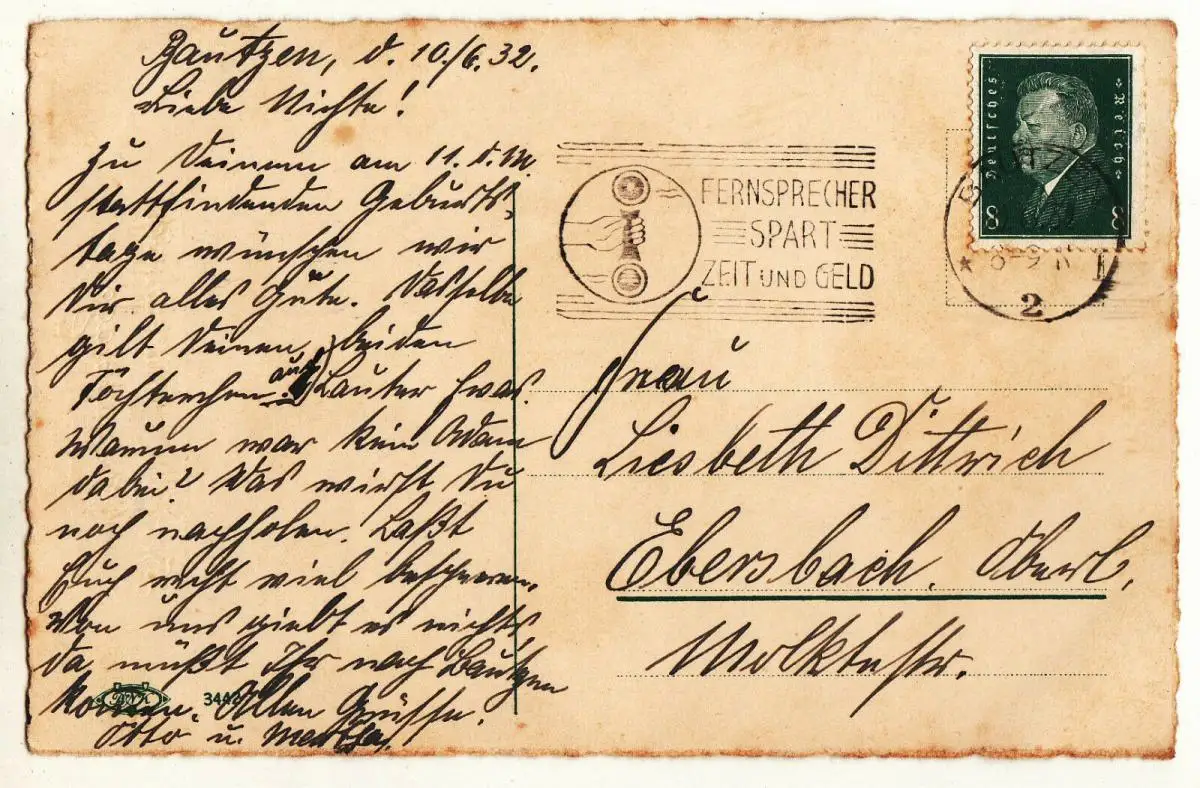 Bautzen, d. 10./6.32.
Liebe Nichte!
Zu Deinem am 11. d. M.
stattfindenden Geburts-
tage wünschen wir
Dir alles Gute. Dasselbe
gilt Deinen beiden
Töchterchen. auch Lauter
Warum war kein Adam
dabei? Das wirst Du
noch nachholen. Laßt
Euch recht viel bescheeren.
Von uns giebt es nichts,
da müßt Ihr nach Bautzen
kommen. Allen Grüsse.
Otto u. Martha.
3442
FERNSPRECHER
SPART
ZEIT UND GELD
Deutsches Reich
8 8
8-9
2
Frau
Liesbeth Dittrich
Ebersbach. Oberl.
Moltkestr.